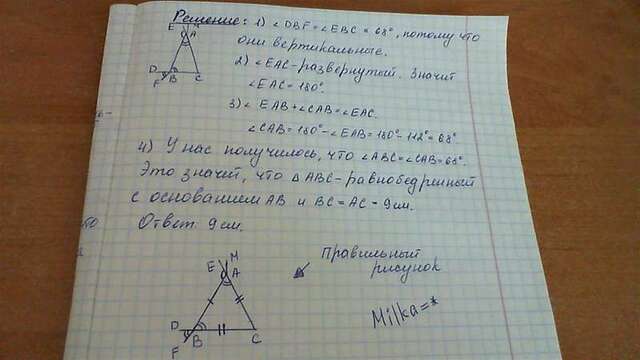 Решение: 1) ∠DBF = ∠EBC = 68°, потому что
они вертикальные.
2) ∠EAC - развернутый. Значит
∠EAC = 180°.
3) ∠ EAB + ∠CAB = ∠EAC.
∠CAB = 180° - ∠EAB = 180° - 112° = 68°
4) У нас получилось, что ∠ABC = ∠CAB = 68°.
Это значит, что △ABC - равнобедренный
с основанием AB и BC = AC = 9 см.
Ответ: 9 см.
E M
A
D B C
F
Правильный
рисунок
E M
A
D B C
F
Milka=*